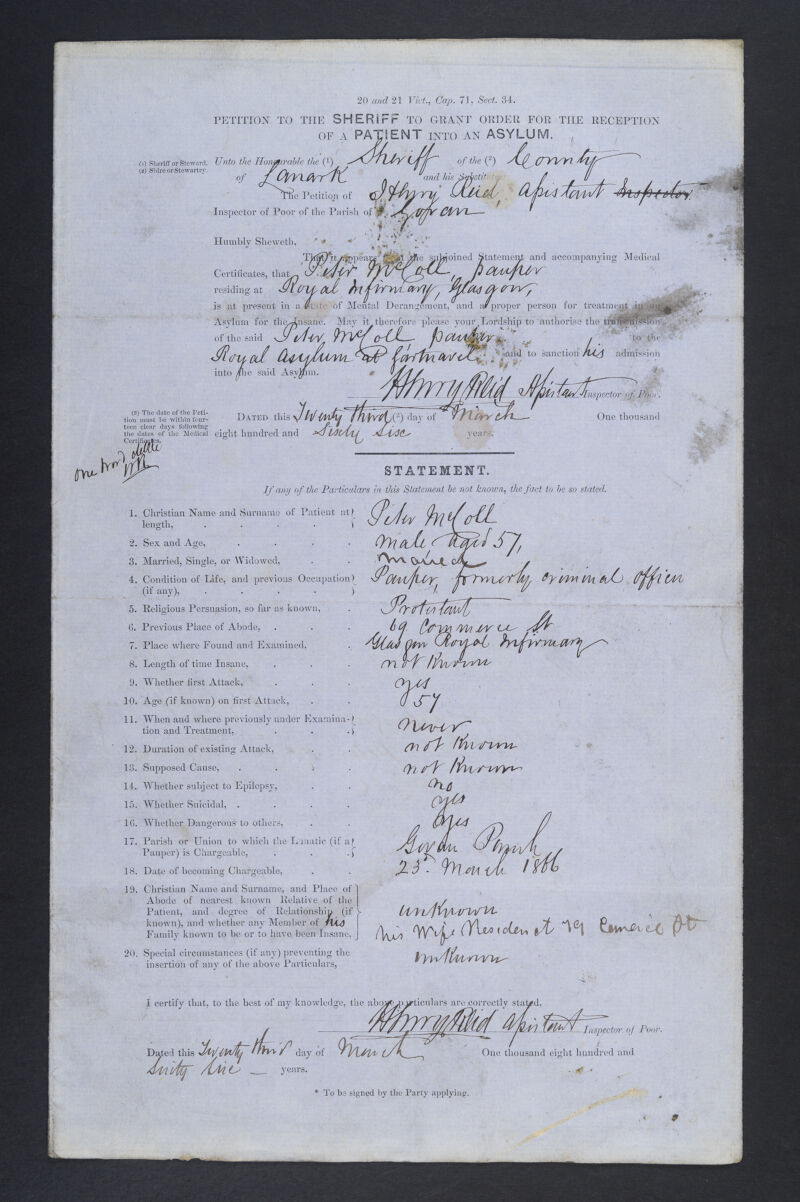 20 and 21 Vict., Cap. 71, Sect. 34.
PETITION TO THE SHERIFF TO GRANT ORDER FOR THE RECEPTION
OF A PATIENT INTO AN ASYLUM.
(1) Sheriff or Steward.
(2) Shire or Stewartry.
Unto the Honourable the (1) Sheriff of the (2) County
of Lanark and his Substitute
The Petition of Henry Reid, Assistant Inspector
Inspector of Poor of the Parish of Govan
Humbly Sheweth,
That it appears the subjoined Statement and accompanying Medical
Certificates, that Peter McColl, pauper
residing at Royal Infirmary, Glasgow,
is at present in a state of Mental Derangement, and a proper person for treatment in an
Asylum for the Insane. May it therefore please your Lordship to authorise the transmission
of the said Peter McColl pauper to the
Royal Asylum at Gartnavel and to sanction his admission
into the said Asylum.
Henry Reid Assistant Inspector of Poor.
(3) The date of the Petition must be within fourteen clear days following the dates of the Medical Certificates.
DATED this Twenty third (3) day of March One thousand
eight hundred and Sixty Six years.
one word delete
HR
STATEMENT.
If any of the Particulars in this Statement be not known, the fact to be so stated.
1. Christian Name and Surname of Patient at length, Peter McColl
2. Sex and Age, male aged 57,
3. Married, Single, or Widowed, Married
4. Condition of Life, and previous Occupation (if any), Pauper, formerly criminal officer
5. Religious Persuasion, so far as known, Protestant
6. Previous Place of Abode, 69 Commerce St
7. Place where Found and Examined, Glasgow Royal Infirmary
8. Length of time Insane, not Known
9. Whether first Attack, yes
10. Age (if known) on first Attack, 57
11. When and where previously under Examination and Treatment, never
12. Duration of existing Attack, not Known
13. Supposed Cause, not Known
14. Whether subject to Epilepsy, no
15. Whether Suicidal, yes
16. Whether Dangerous to others, yes
17. Parish or Union to which the Lunatic (if a Pauper) is Chargeable, Govan Parish
18. Date of becoming Chargeable, 23d March 1866
19. Christian Name and Surname, and Place of
Abode of nearest known Relative of the
Patient, and degree of Relationship (if
known), and whether any Member of his
Family known to be or to have been Insane, unknown
his Wife Resident at 79 Commerce St
20. Special circumstances (if any) preventing the
insertion of any of the above Particulars, unKnown
I certify that, to the best of my knowledge, the above particulars are correctly stated,
Henry Reid Assistant Inspector of Poor.
Dated this Twenty third day of March One thousand eight hundred and
Sixty Six years.
* To be signed by the Party applying.